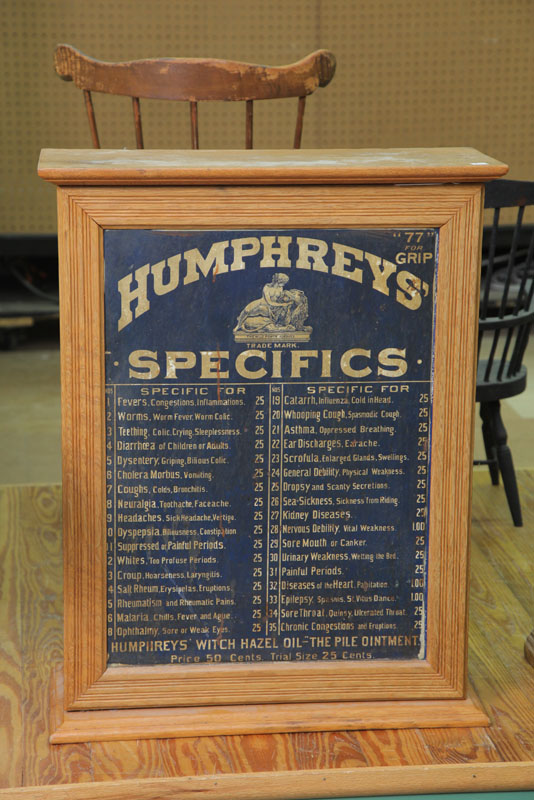 "77"
FOR
GRIP
HUMPHREYS'
TRADE MARK.
SPECIFICS
NOS SPECIFIC FOR
1 Fevers, Congestions, Inflammations. 25
2 Worms, Worm Fever, Worm Colic. 25
3 Teething, Colic, Crying, Sleeplessness. 25
4 Diarrhœa of Children or Adults. 25
5 Dysentery, Griping, Bilious Colic. 25
6 Cholera Morbus, Vomiting. 25
7 Coughs, Colds, Bronchitis. 25
8 Neuralgia, Toothache, Faceache. 25
9 Headaches, Sick Headache, Vertigo. 25
0 Dyspepsia, Biliousness, Constipation 25
1 Suppressed or Painful Periods. 25
2 Whites, Too Profuse Periods. 25
3 Croup, Hoarseness, Laryngitis. 25
4 Salt Rheum, Erysipelas, Eruptions. 25
5 Rheumatism and Rheumatic Pains. 25
6 Malaria, Chills, Fever, and Ague. 25
8 Ophthalmy, Sore or Weak Eyes. 25
NOS SPECIFIC FOR
19 Catarrh, Influenza, Cold in Head. 25
20 Whooping Cough, Spasmodic Cough. 25
21 Asthma, Oppressed Breathing. 25
22 Ear Discharges, Earache. 25
23 Scrofula, Enlarged Glands, Swellings. 25
24 General Debility, Physical Weakness. 25
25 Dropsy and Scanty Secretions. 25
26 Sea-Sickness, Sickness from Riding. 25
27 Kidney Diseases. 25
28 Nervous Debility, Vital Weakness. 1.00
29 Sore Mouth or Canker. 25
30 Urinary Weakness, Wetting the Bed. 25
31 Painful Periods. 25
32 Diseases of the Heart, Palpitation. 1.00
33 Epilepsy, Spasms, St. Vitus Dance. 1.00
34 Sore Throat, Quinsy, Ulcerated Throat. 25
35 Chronic Congestions and Eruptions. 25
HUMPHREYS' WITCH HAZEL OIL-"THE PILE OINTMENT."
Price 50 Cents. Trial Size 25 Cents.